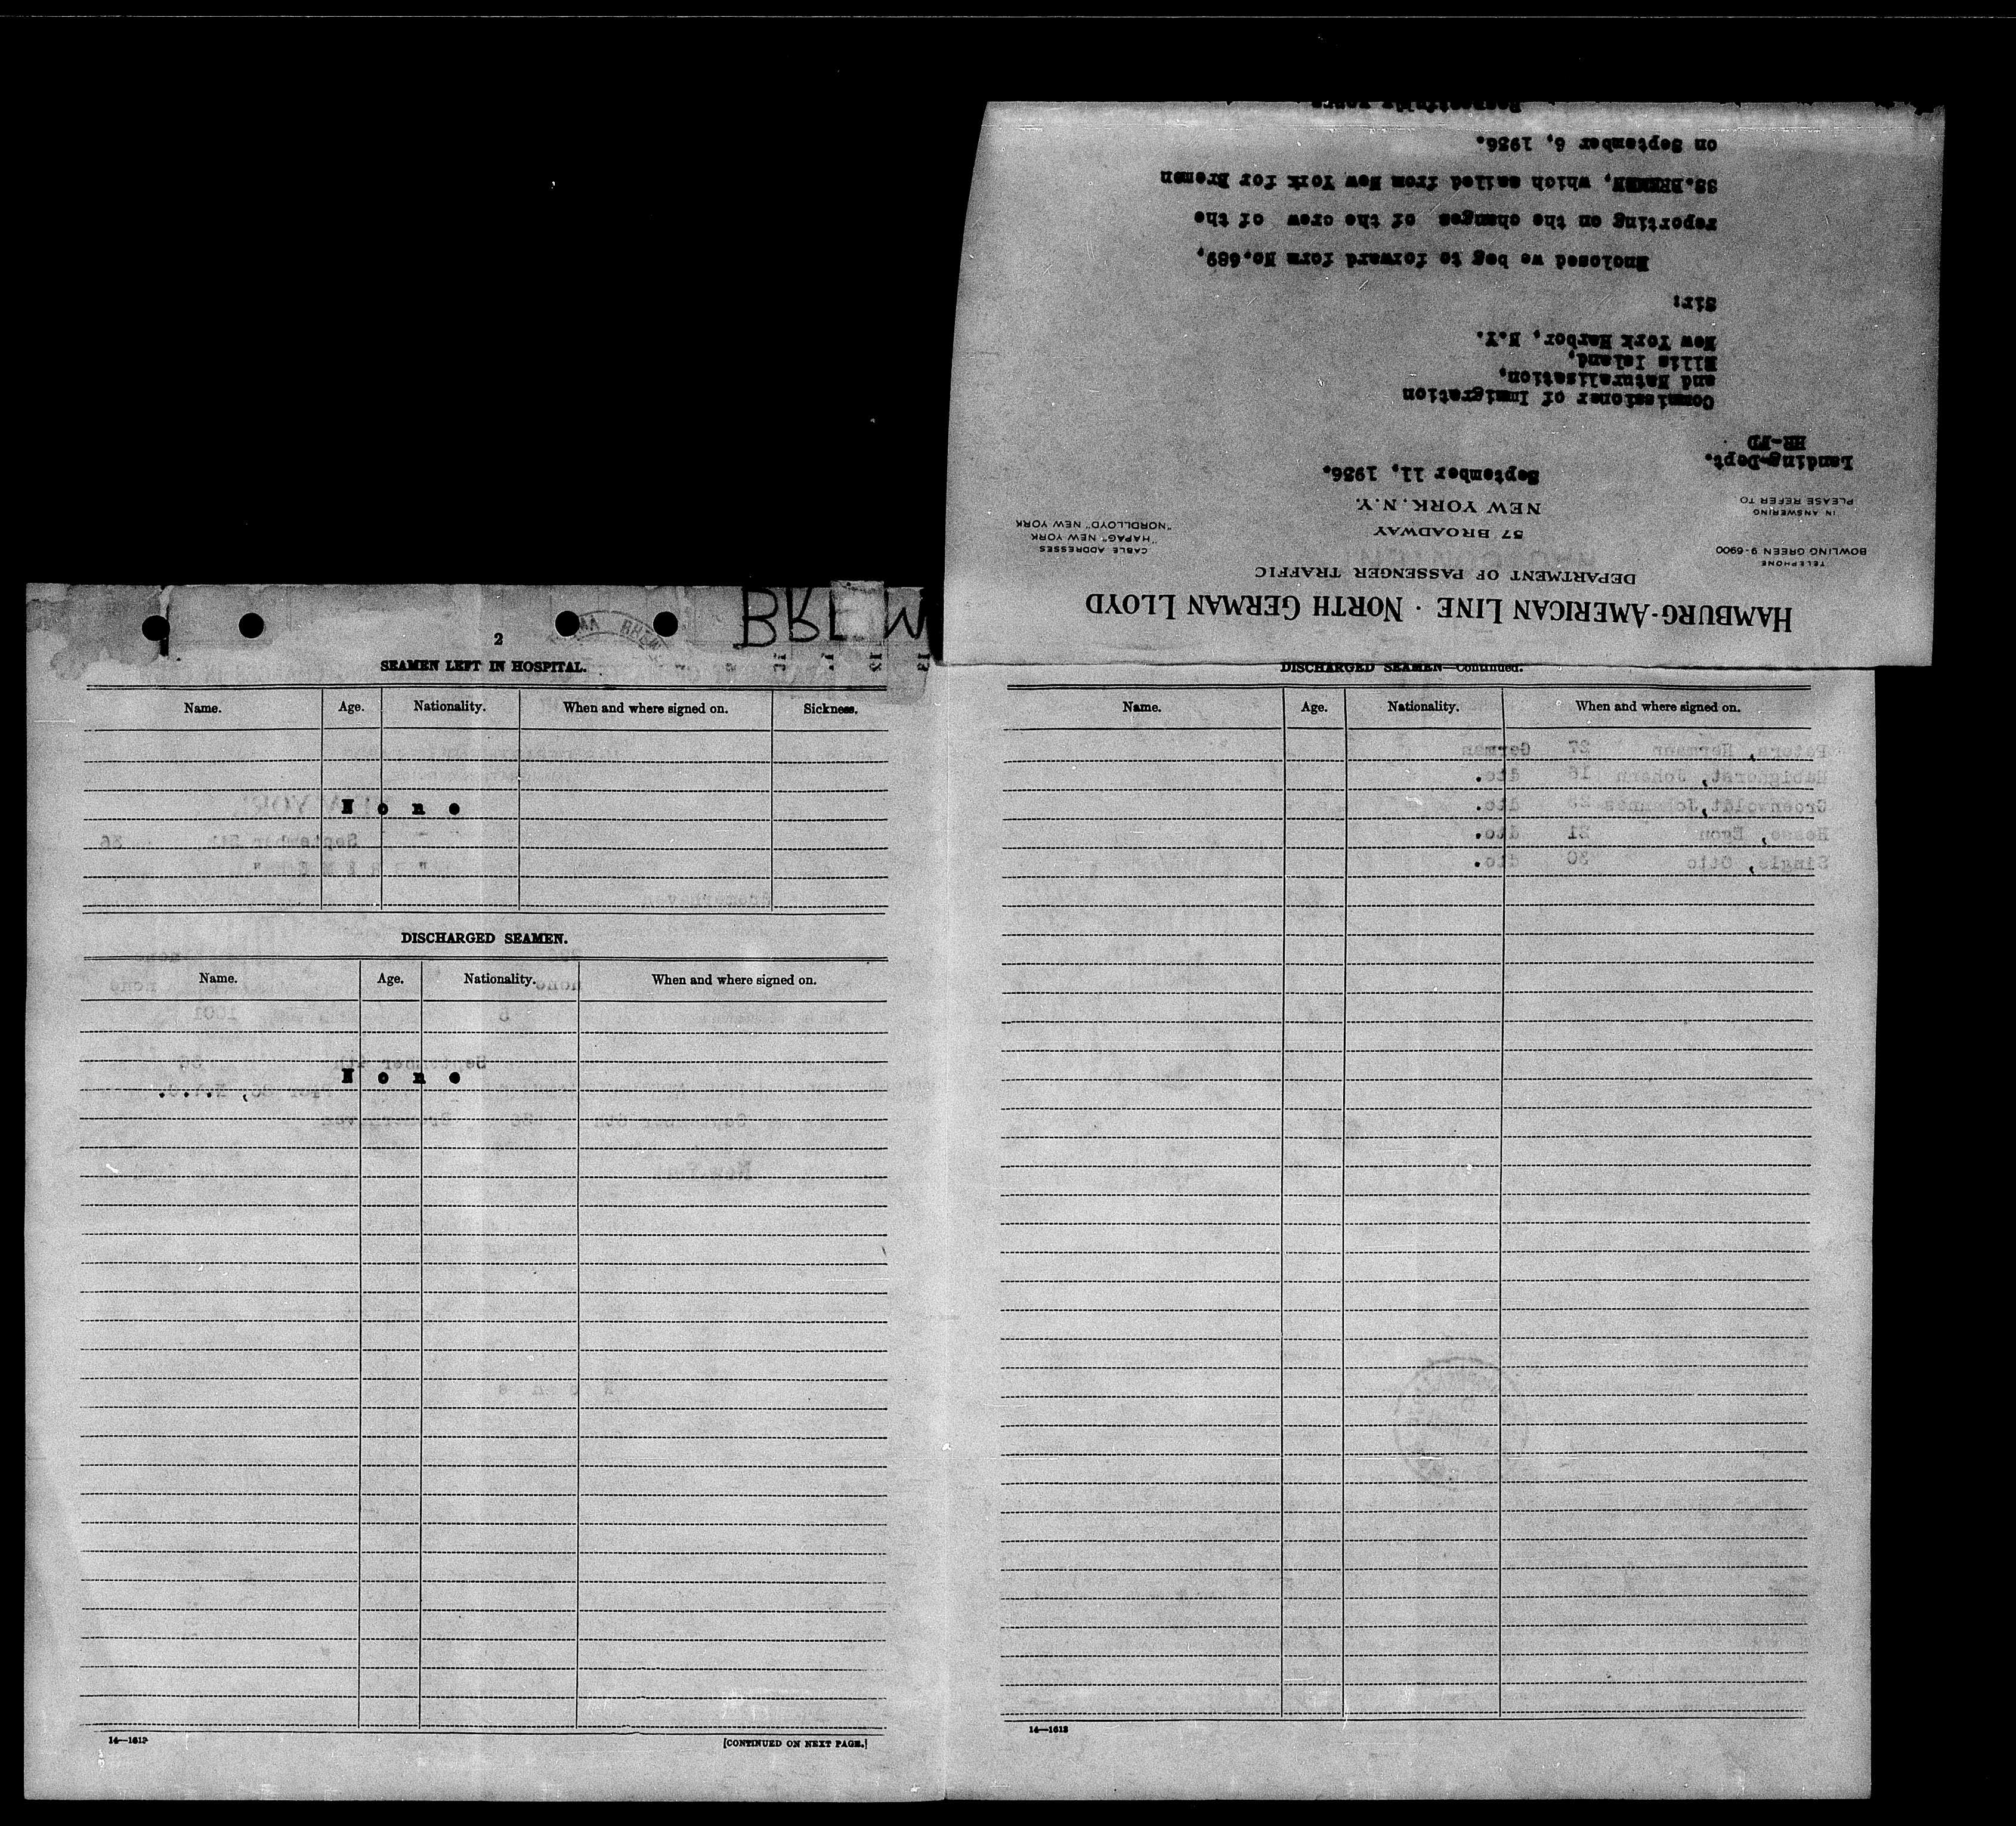 HAMBURG-AMERICAN LINE · NORTH GERMAN LLOYD
DEPARTMENT OF PASSENGER TRAFFIC
57 BROADWAY
NEW YORK, N.Y.
TELEPHONE
BOWLING GREEN 9-6900
CABLE ADDRESSES
"HAPAG" NEW YORK
"NORDLLOYD" NEW YORK
IN ANSWERING
PLEASE REFER TO
Landing-Dept.
HR-FD
September 11, 1936.
Commissioner of Immigration
and Naturalization,
Ellis Island,
New York Harbor, N.Y.
Sir:
Enclosed we beg to forward form No.689,
reporting on the changes of the crew of the
SS.BREMEN, which sailed from New York for Bremen
on September 6, 1936.
Respectfully yours
BREM
2
SEAMEN LEFT IN HOSPITAL.
Name. Age. Nationality. When and where signed on. Sickness.
N o n e
DISCHARGED SEAMEN.
Name. Age. Nationality. When and where signed on.
N o n e
14—1613
[CONTINUED ON NEXT PAGE.]
DISCHARGED SEAMEN—Continued.
Name. Age. Nationality. When and where signed on.
Peters, Hermann 27 German
Habighorst, Johann 16 dto.
Groenwoldt, Johannes dto.
Hesse, Egon 21 dto.
Single, Otto 30 dto.
14—1613